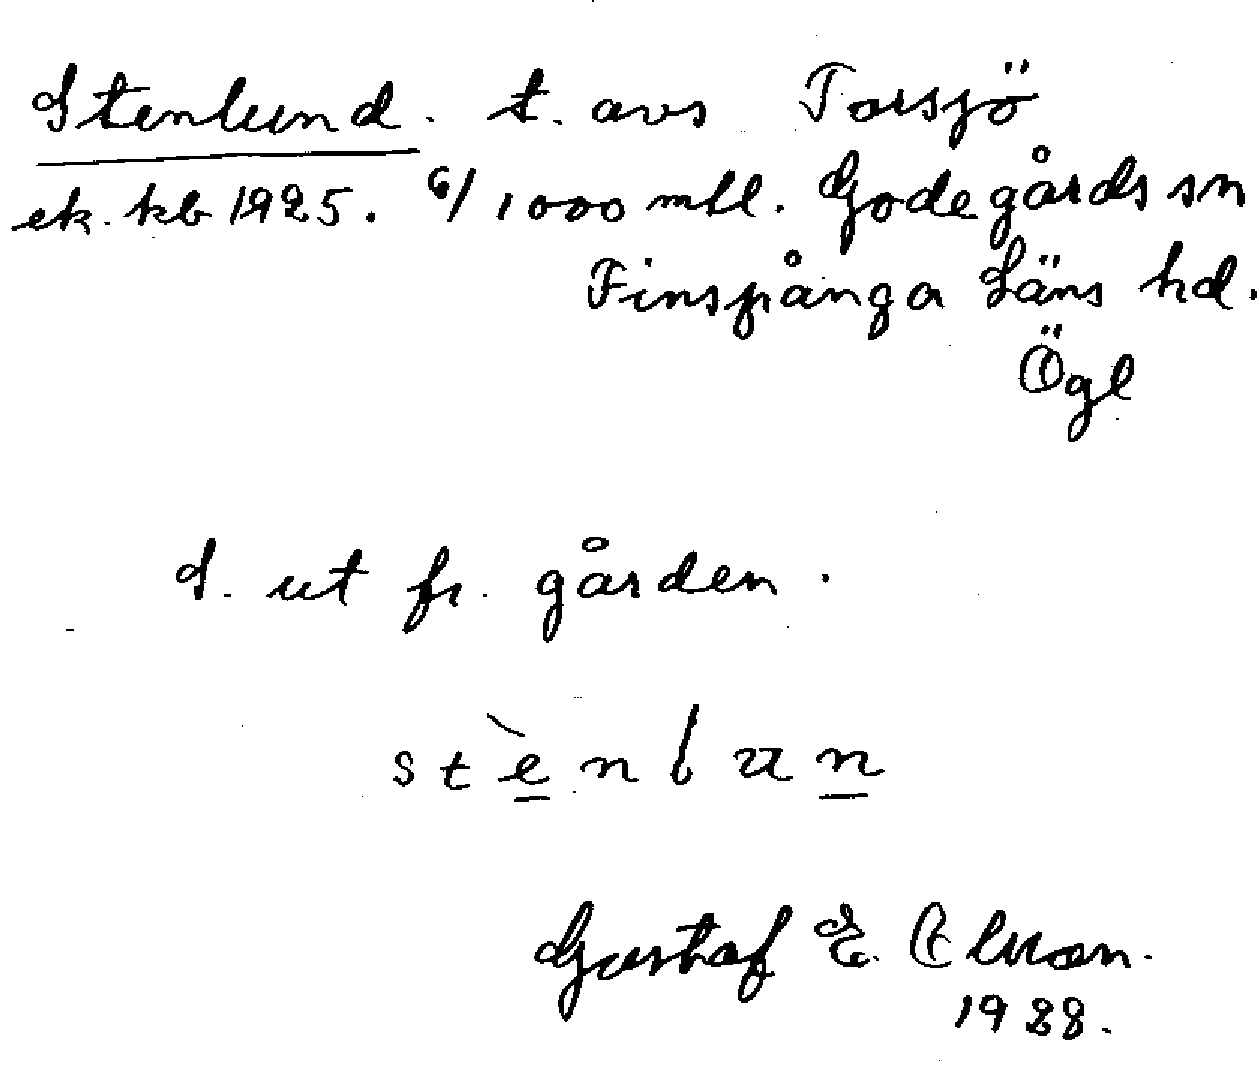 Stenlund. t. avs Torsjö
ek. kb 1925. 6/1000 mtl. Godegårds sn
Finspånga Läns hd.
Ögl
S. ut fr. gården.
stènlun
Gustaf E.